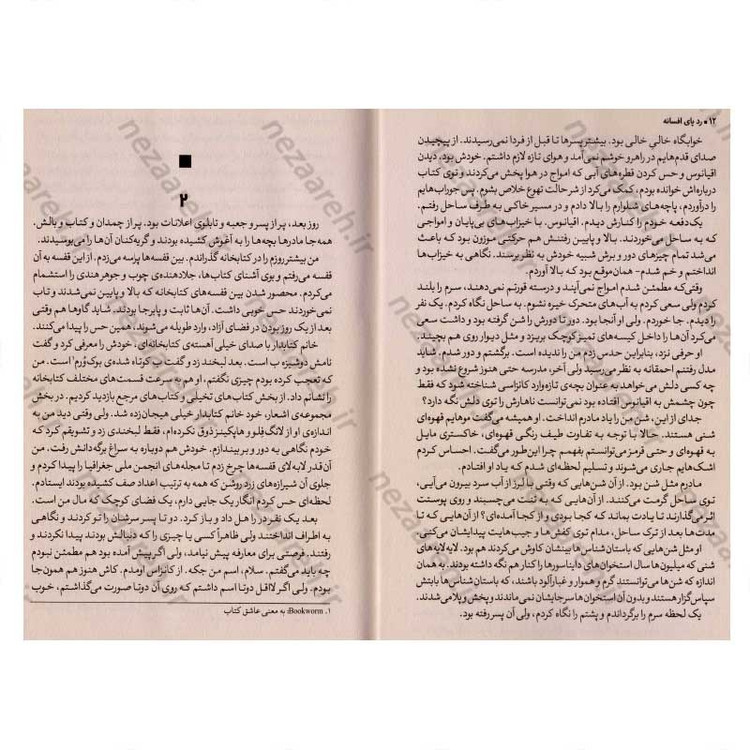 ۱۲ ▪ رد پای افسانه
خوابگاه خالی خالی بود. بیشتر پسرها تا قبل از فردا نمی‌رسیدند. از پیچیدن
صدای قدم‌هایم در راهرو خوشم نمی‌آمد و هوای تازه لازم داشتم. خودش بود، دیدن
اقیانوس و حس کردن قطره‌های آبی که امواج در هوا پخش می‌کردند و توی کتاب
درباره‌اش خوانده بودم، کمک می‌کرد از شر حالت تهوع خلاص بشوم. پس جوراب‌هایم
را درآوردم، پاچه‌های شلوارم را بالا دادم و در مسیر خاکی به طرف ساحل رفتم.
یک‌دفعه خودم را کنارش دیدم. اقیانوس. با خیزاب‌های بی‌پایان و امواجی
که به ساحل می‌خوردند. بالا و پایین رفتنش هم حرکتی موزون بود که باعث
می‌شد تمام چیزهای دور و برش شبیه خودش به نظر برسند. نگاهی به خیزاب‌ها
انداختم و خم شدم- همان‌موقع بود که بالا آوردم.
وقتی‌که مطمئن شدم امواج نمی‌آیند و درسته قورتم نمی‌دهند، سرم را بلند
کردم ولی سعی کردم به آب‌های متحرک خیره نشوم. به ساحل نگاه کردم. یک نفر
را دیدم. جا خوردم. ولی او آنجا بود. دور تا دورش را شن گرفته بود و داشت سعی
می‌کرد آن‌ها را داخل کیسه‌های تمیز کوچک بریزد و مثل دیوار روی هم بچیند.
او حرفی نزد، بنابراین حدس زدم من را ندیده است. برگشتم و دور شدم. شاید
مدل رفتنم احمقانه به نظر می‌رسید ولی آخر، مدرسه حتی هنوز شروع نشده بود و
چه کسی دلش می‌خواهد به عنوان بچه‌ی تازه‌وارد کانزاسی شناخته شود که فقط
چون چشمش به اقیانوس افتاده بود نمی‌توانست ناهارش را توی دلش نگه دارد؟
جدای از این، شن من را یاد مادرم انداخت. او همیشه می‌گفت موهایم قهوه‌ای
شنی هستند. حالا با توجه به تفاوت طیف رنگی قهوه‌ای، خاکستری مایل
به قهوه‌ای و حتی قرمز می‌توانستم بفهمم چرا این‌طور می‌گفت. احساس کردم
اشک‌هایم جاری می‌شوند و تسلیم لحظه‌ای شدم که یاد او افتادم.
مادرم مثل شن بود. از آن شن‌هایی که وقتی با لرز از آب سرد بیرون می‌آیی،
توی ساحل گرمت می‌کنند. از آن‌هایی که به تنت می‌چسبند و روی پوستت
اثر می‌گذارند تا یادت بماند که کجا بودی و از کجا آمده‌ای؟ از آن‌هایی که تا
مدت‌ها بعد از ترک ساحل، مدام توی کفش‌ها و جیب‌هایت پیدایشان می‌کنی.
او مثل شن‌هایی که باستان‌شناس‌ها بینشان کاوش می‌کردند هم بود. لایه‌لایه‌های
شنی که میلیون‌ها سال استخوان‌های دایناسورها را کنار هم نگه داشته بودند. به همان
اندازه که شن‌ها می‌توانستندِ گرم و هموار و غبارآلود باشند، که باستان‌شناس‌ها بابتش
سپاس‌گزار هستند و بدون آن استخوان‌ها سر جایشان نمی‌ماندند و پخش و پلا می‌شدند.
یک لحظه سرم را برگرداندم و پشتم را نگاه کردم، ولی آن پسر رفته بود.
۲
روز بعد، پر از پسر و جعبه و تابلوی اعلانات بود. پر از چمدان و کتاب و بالش.
همه‌جا مادرها بچه‌ها را به آغوش کشیده بودند و گریه‌کنان آن‌ها را می‌بوسیدند.
من بیشتر روزم را در کتابخانه گذراندم. بین قفسه‌ها پرسه می‌زدم. از این قفسه به آن
قفسه می‌رفتم و بوی آشنای کتاب‌ها، جلادهنده‌ی چوب و جوهر هندی را استشمام
می‌کردم. محصور شدن بین قفسه‌های کتابخانه که بالا و پایین نمی‌شدند و تاب
نمی‌خوردند حس خوبی داشت. آن‌ها ثابت و پابرجا بودند. شاید گاوها هم وقتی
بعد از یک روز بودن در فضای آزاد، وارد طویله می‌شوند، همین حس را پیدا می‌کنند.
خانم کتابدار با صدای خیلی آهسته‌ی کتابخانه‌ای، خودش را معرفی کرد و گفت
نامش دوشیزه ب است. بعد لبخند زد و گفت ب کوتاه شده‌ی بوک‌وُرم۱ است. من
که تعجب کرده بودم چیزی نگفتم. او هم به سرعت قسمت‌های مختلف کتابخانه
را نشانم داد. از بخش کتاب‌های تخیلی و کتاب‌های مرجع بازدید کردیم. در بخش
مجموعه‌ی اشعار، خود خانم کتابدار خیلی هیجان‌زده شد. ولی وقتی دید من به
اندازه‌ی او از لانگ‌فِلو و هاپکینز ذوق نکرده‌ام، فقط لبخندی زد و تشویقم کرد که
خودم نگاهی به دور و بر بیندازم. خودش هم دوباره به سراغ برگه‌دانش رفت. من
آن قدر لابه‌لای قفسه‌ها چرخ زدم تا مجله‌های انجمن ملی جغرافیا را پیدا کردم و
جلوی آن شیرازه‌های زرد روشن که همه به ترتیب اعداد صف کشیده بودند ایستادم.
لحظه‌ای حس کردم انگار یک جایی دارم، یک فضای کوچک که مال من است.
بعد یک نفر در را هل داد و باز کرد. دو تا پسر سرشان را تو کردند و نگاهی
به اطراف انداختند ولی ظاهراً کسی یا چیزی را که دنبالش بودند پیدا نکردند و
رفتند. فرصتی برای معارفه پیش نیامد، ولی اگر پیش آمده بود هم مطمئن نبودم
چه باید می‌گفتم. سلام، اسم من جکه. از کانزاس اومدم. کاش هنوز هم همون‌جا
بودم. ولی اگر لااقل دوتا اسم داشتم که روی آن دوتا صورت می‌گذاشتم، خوب
۱. Bookworm: به معنی عاشق کتاب
nezaareh.ir